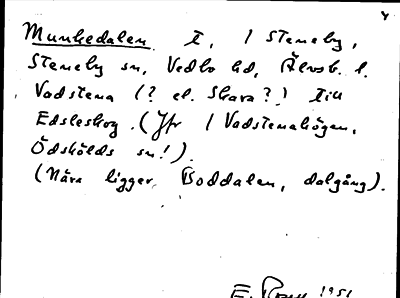 Munkedalen t, / Steneby,
Steneby sn, Vedbo hd, Älvsb. l.
Vadstena (? el. Skara?) till
Edsleskog. (Jfr / Vadstenahögen,
Ödskölds sn!).
(Nära ligger Boddalen, dalgång).
E. 1951